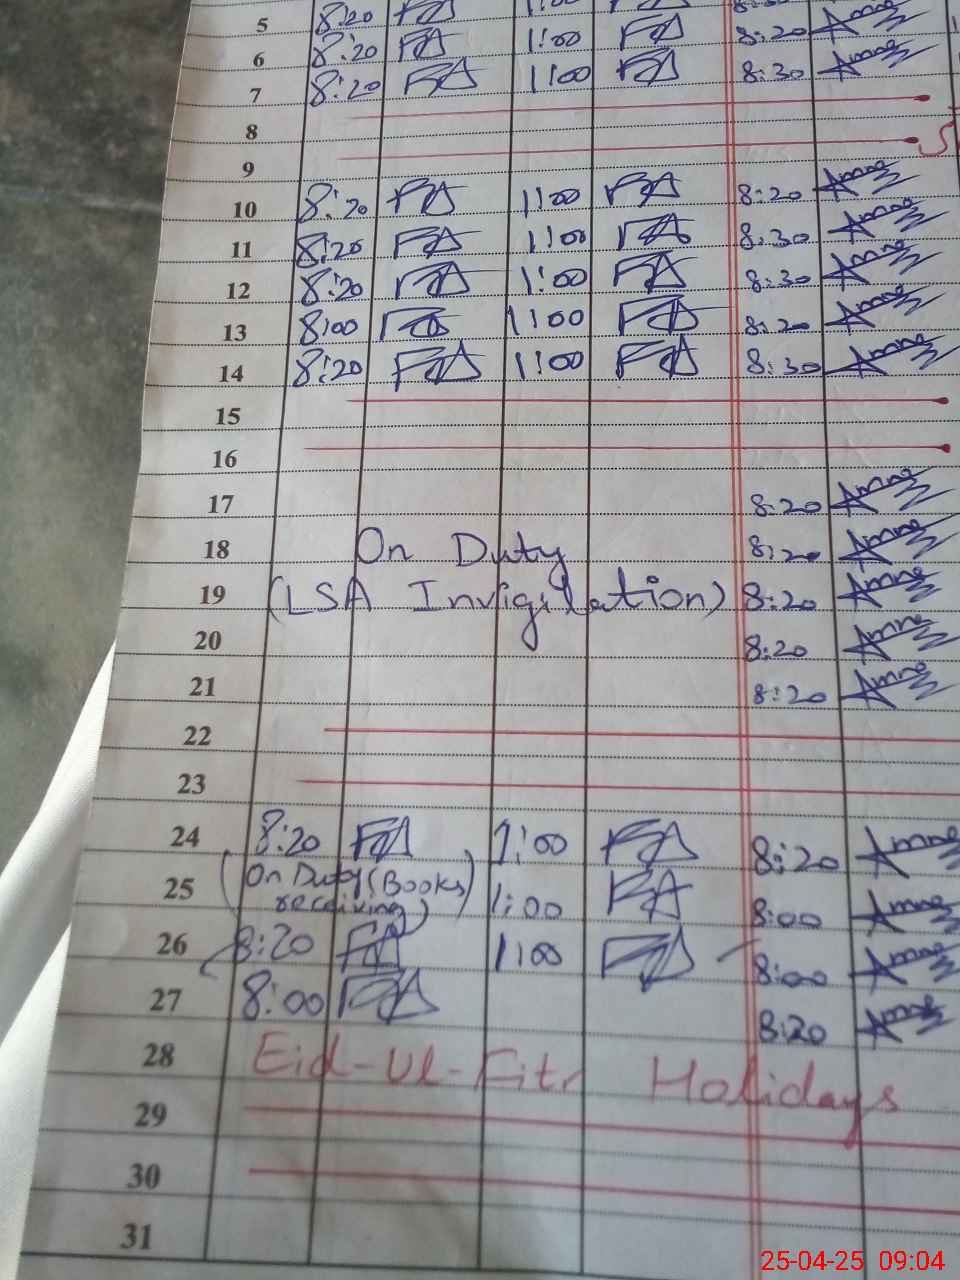 5 8:20 FA 1:00 FA
6 8:20 FA 1:00 FA 8:20 Amna
7 8:20 FA 1:00 FA 8:30 Amna
8
9
10 8:20 FA 1:00 FA 8:20 Amna
11 8:20 FA 1:00 FA 8:30 Amna
12 8:20 FA 1:00 FA 8:30 Amna
13 8:00 FA 1:00 FA 8:20 Amna
14 8:20 FA 1:00 FA 8:30 Amna
15
16
17 8:20 Amna
18 On Duty 8:20 Amna
19 (LSA Invigilation) 8:20 Amna
20 8:20 Amna
21 8:20 Amna
22
23
24 8:20 FA 1:00 FA 8:20 Amna
25 (On Duty (Books receiving) 1:00 FA 8:00 Amna
26 8:20 FA 1:00 FA 8:00 Amna
27 8:00 FA 8:20 Amna
28 Eid-Ul-Fitr Holidays
29
30
31
25-04-25 09:04